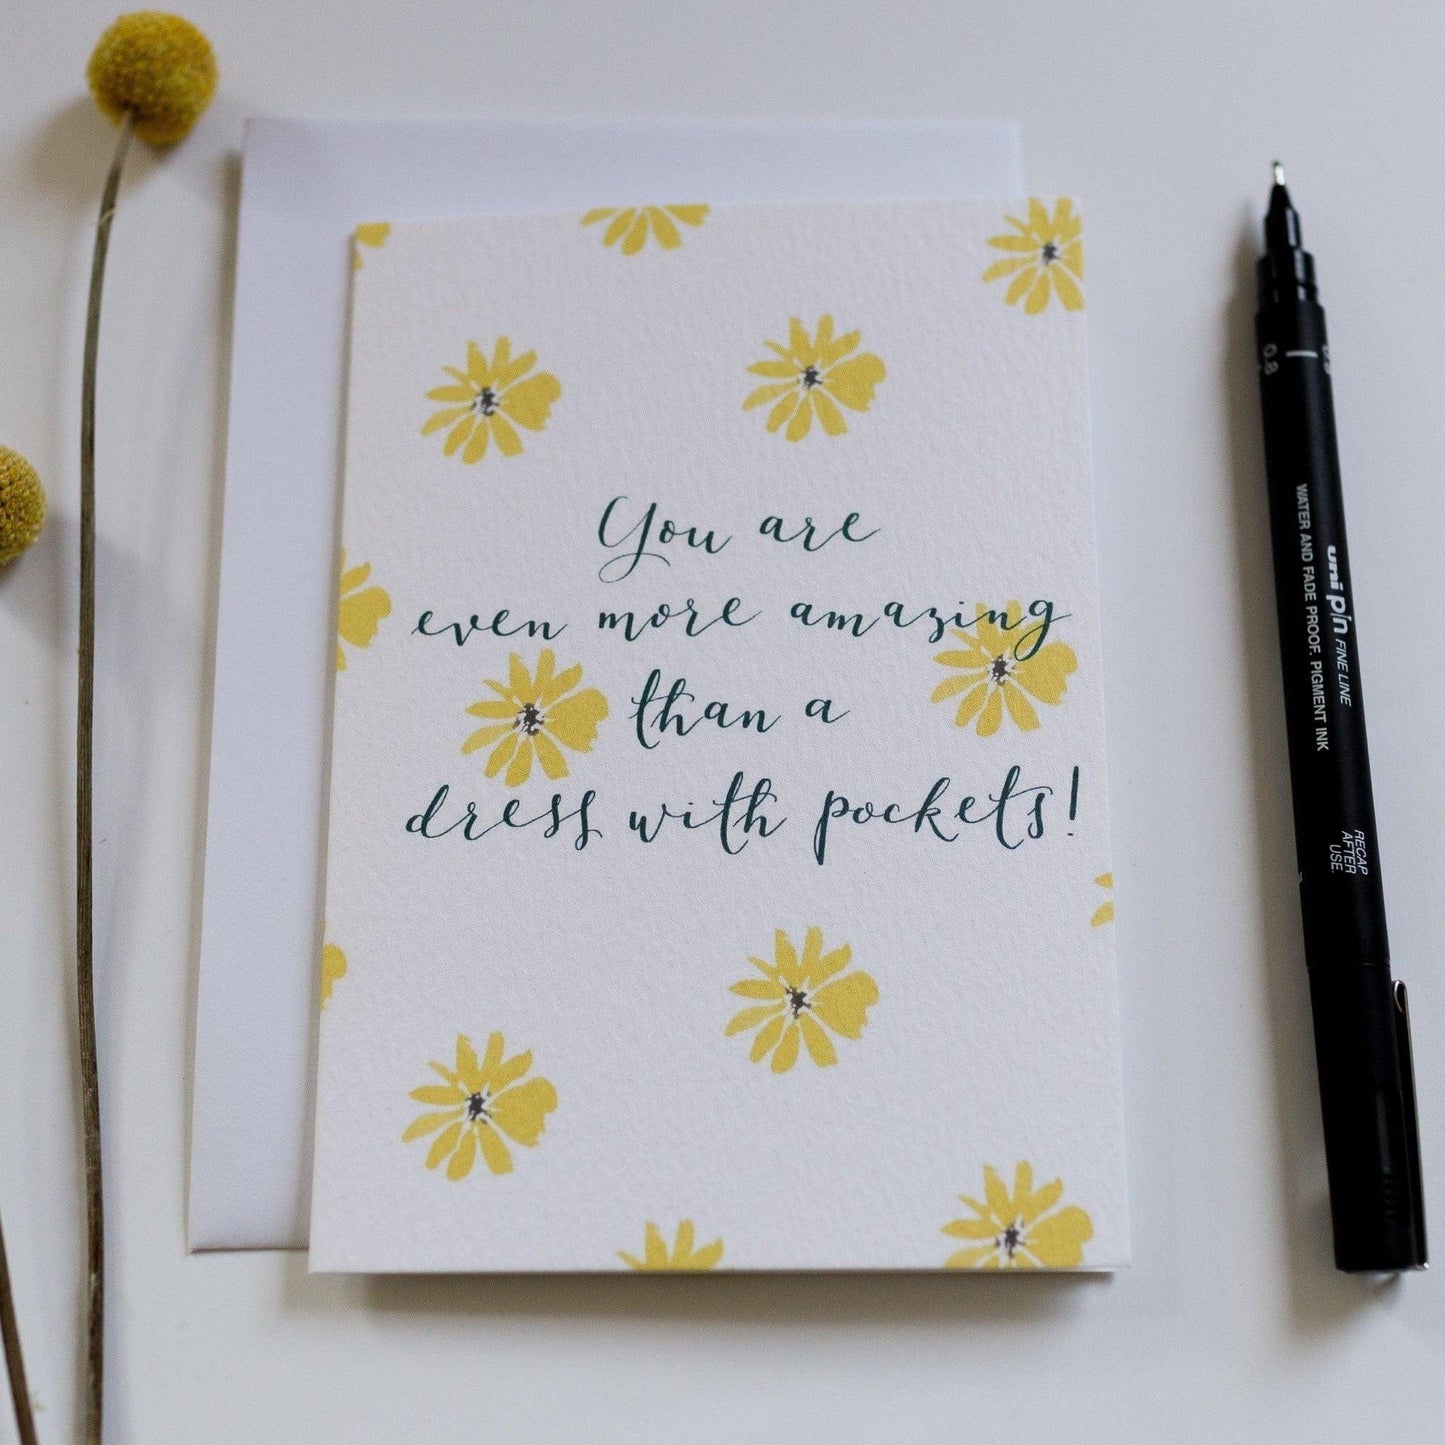 You are
even more amazing
than a
dress with pockets!
0.8
uni pin FINE LINE
WATER AND FADE PROOF. PIGMENT INK
RECAP
AFTER
USE.